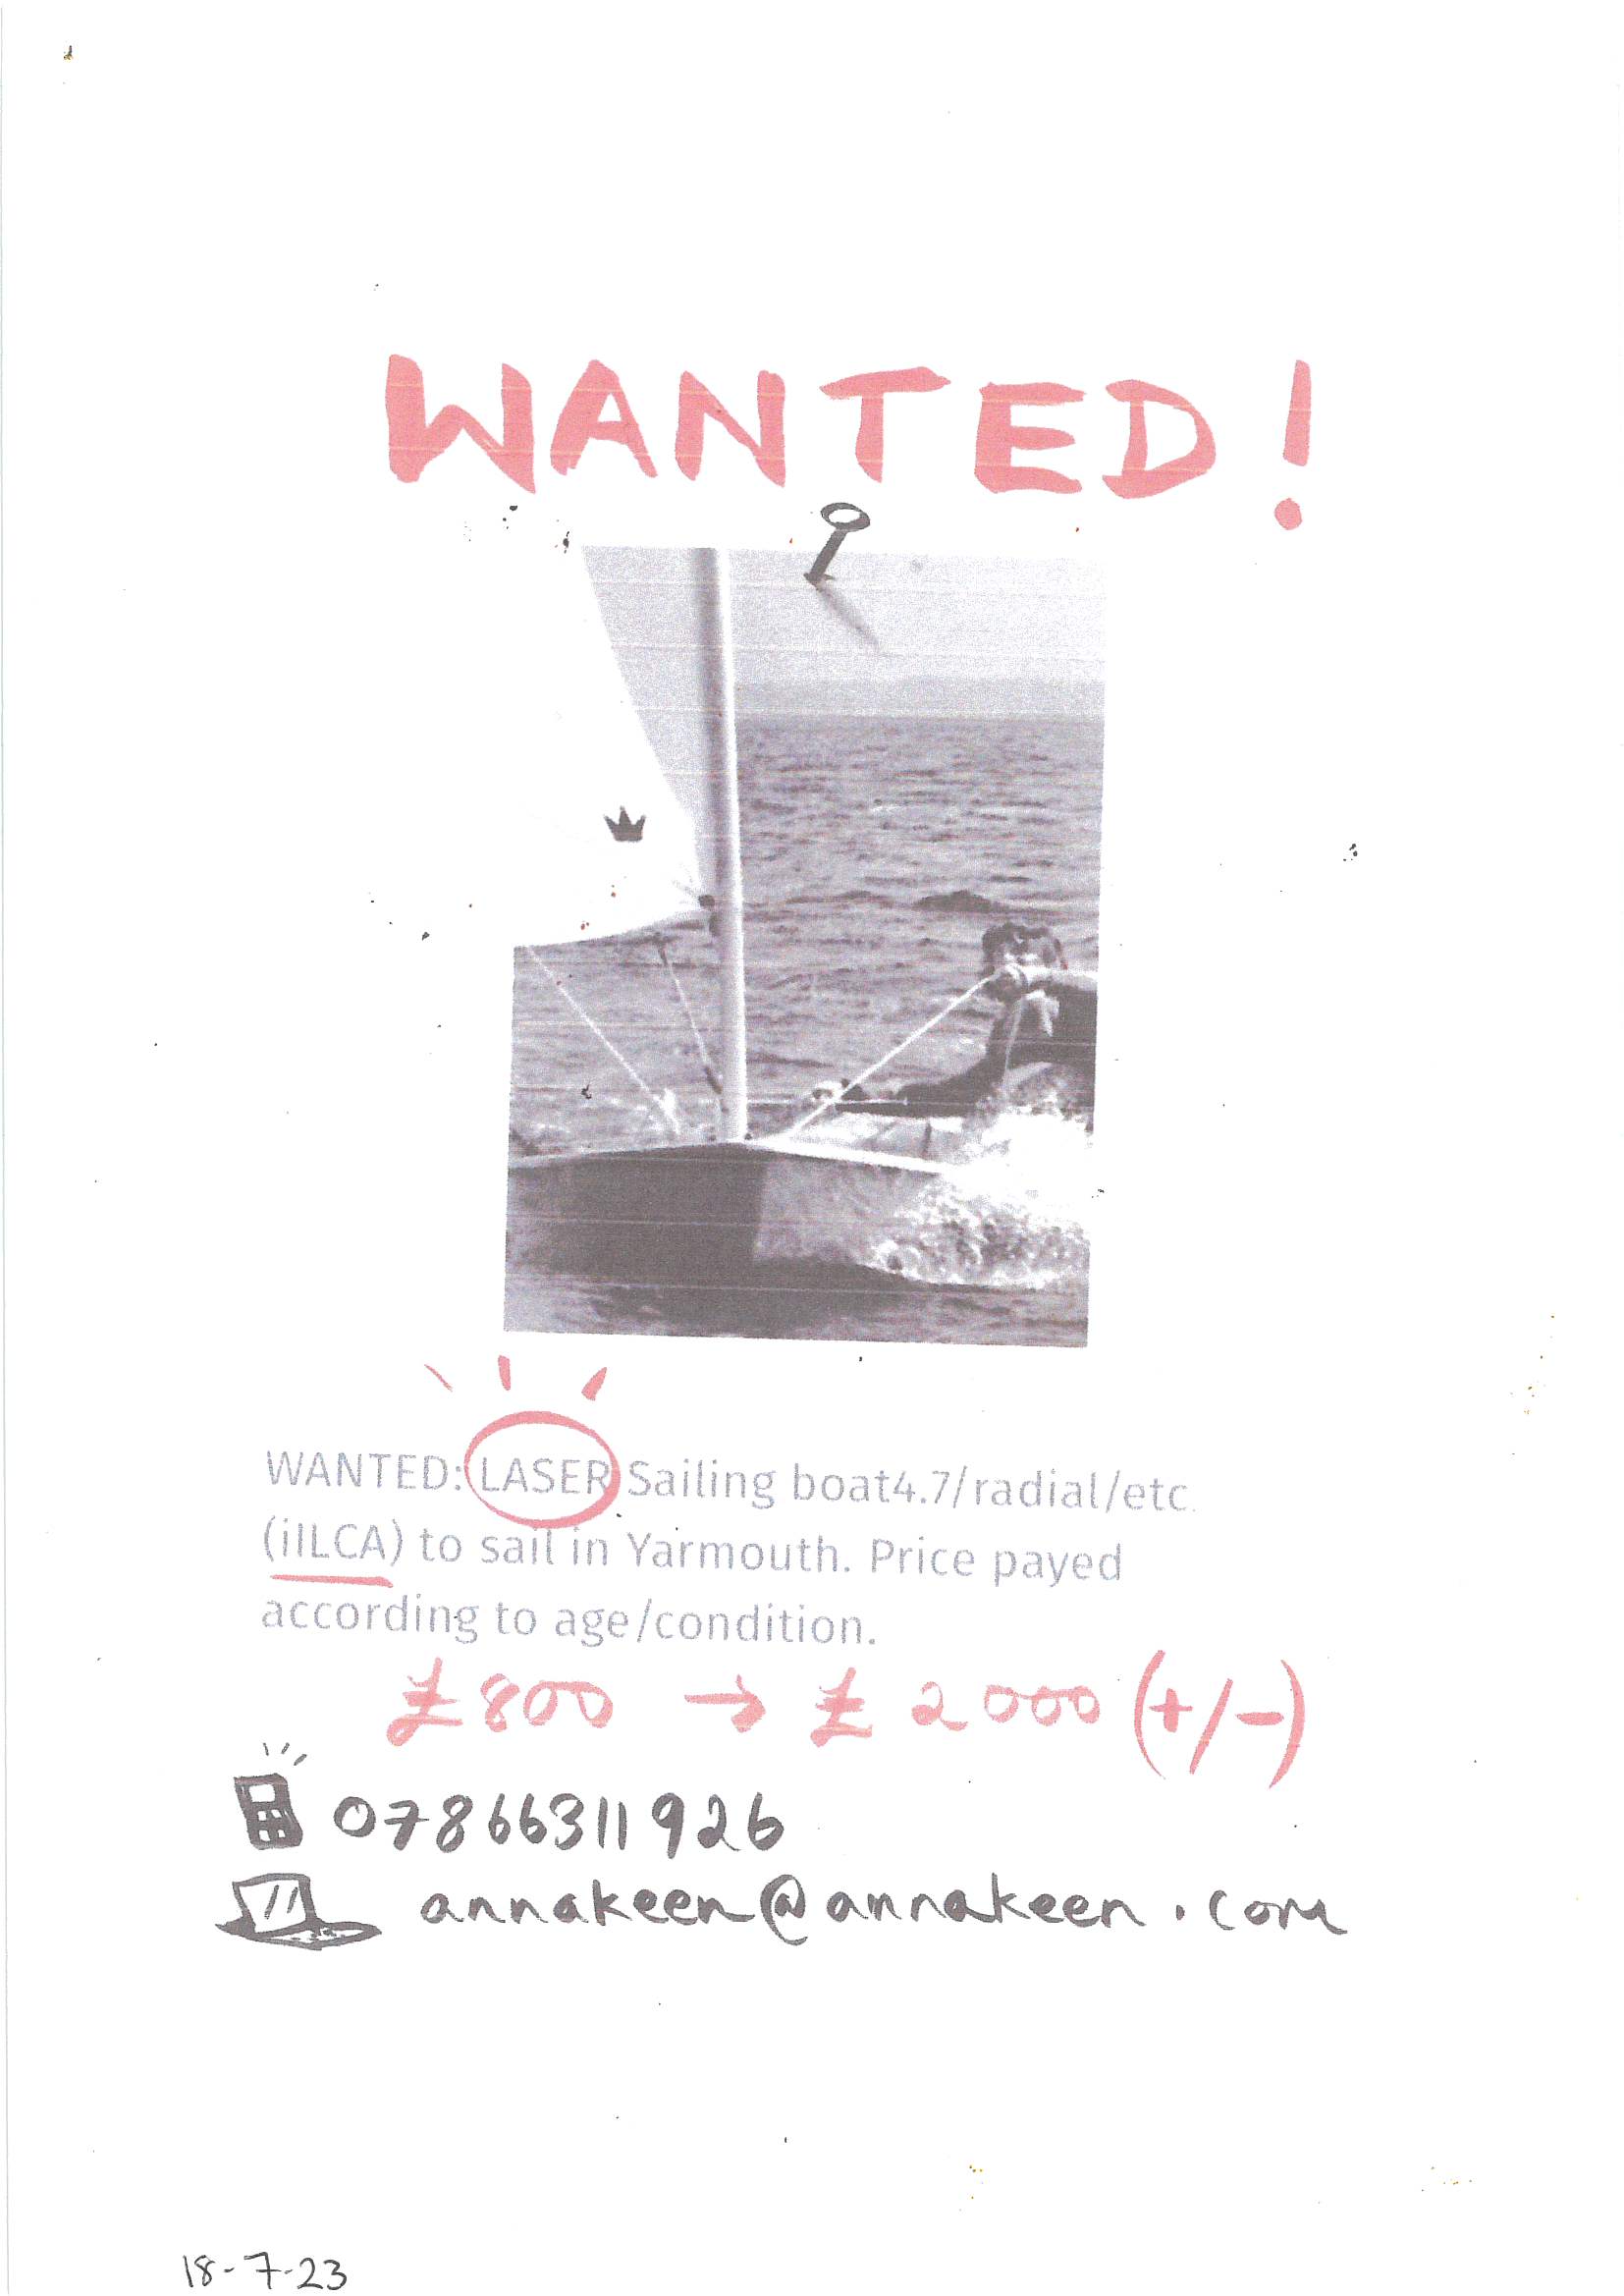 WANTED!
WANTED: LASER Sailing boat4.7/radial/etc.
(iILCA) to sail in Yarmouth. Price payed
according to age/condition.
£800 → £2000 (+/-)
07866311926
annakeen@annakeen.com
18-7-23